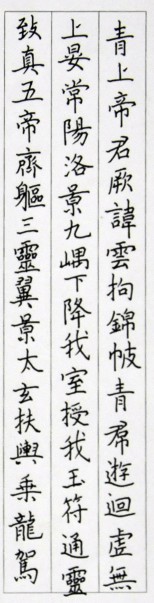 青上帝君厥諱雲拘錦帔青帬遊迴虛無
上晏常陽洛景九嵎下降我室授我玉符通靈
致真五帝齊軀三靈翼景太玄扶輿乘龍駕